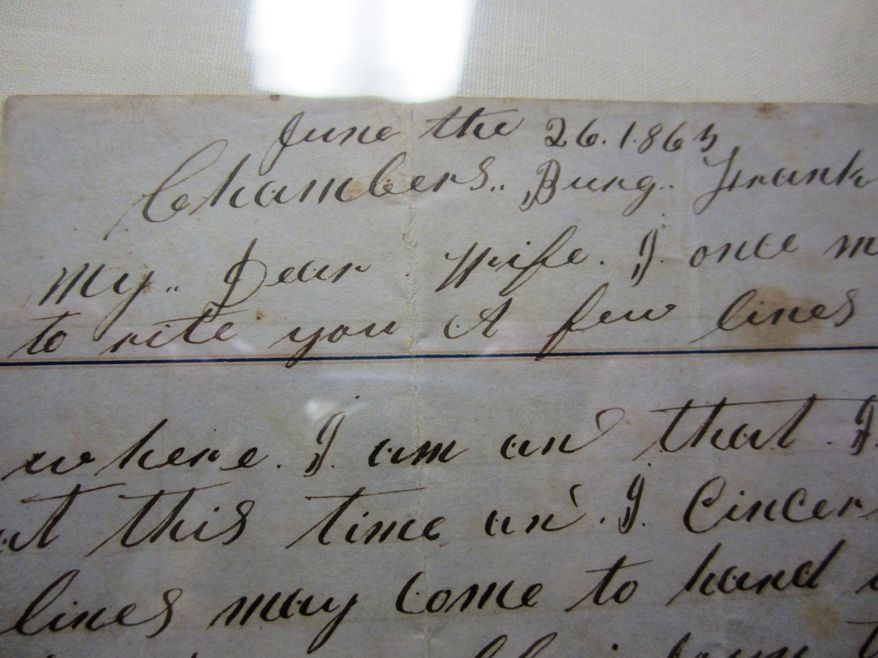 June the 26. 1863
Chambers.. Burg.. Frank
My.. Dear. Wife. I. once m
to rite you A few lines
where. I. am an that. I.
at this time an. I. Cincer
lines may come to hand